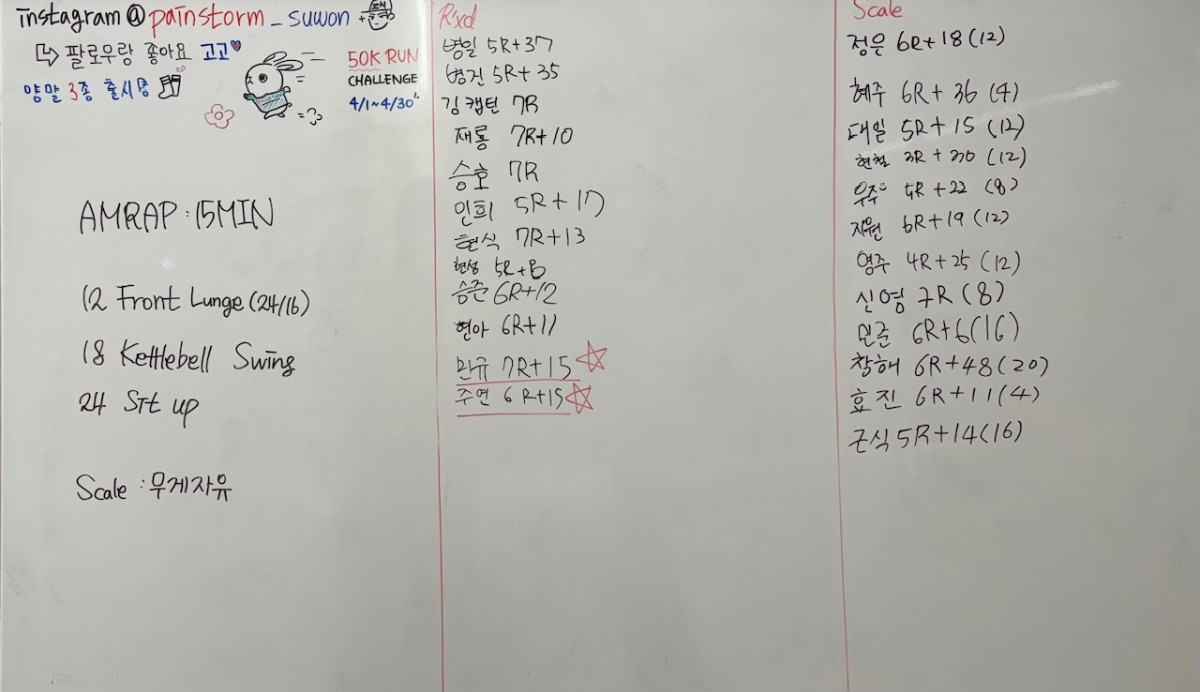 instagram@painstorm_suwon +
↳ 팔로우랑 좋아요 고고♥
양말 3종 출시
50K RUN
CHALLENGE
4/1~4/30
AMRAP : 15MIN
12 Front Lunge (24/16)
18 Kettlebell Swing
24 Sit up
Scale : 무게자유
Rxd
병일 5R+37
병건 5R+35
김캡틴 7R
재룡 7R+10
승호 7R
인희 5R+17
현식 7R+13
현성 5R+
승준 6R+12
현아 6R+11
민규 7R+15 ☆
주연 6R+15 ☆
Scale
정은 6R+18 (12)
혜주 6R+36 (4)
대일 5R+15 (12)
현철 3R+30 (12)
우주 4R+22 (8)
지원 6R+19 (12)
영주 4R+25 (12)
신영 7R (8)
민준 6R+6 (16)
창해 6R+48 (20)
효진 6R+11 (4)
근식 5R+14 (16)